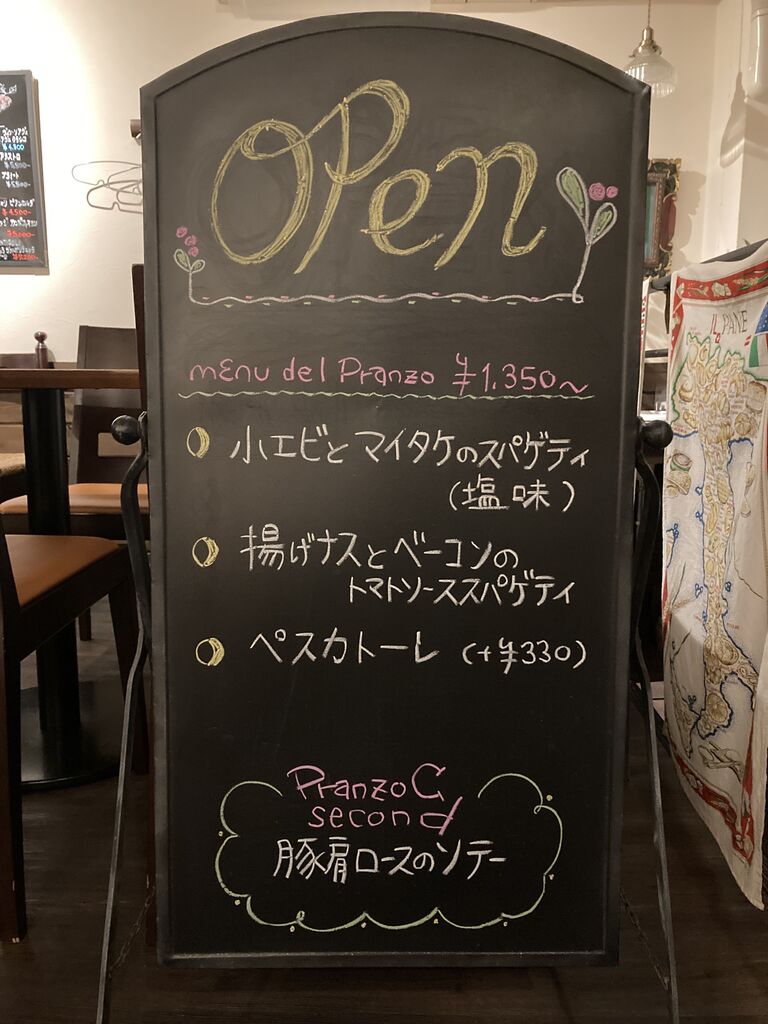 OPen
menu del Pranzo ¥1.350~
小エビとマイタケのスパゲティ
(塩味)
揚げナスとベーコンの
トマトソーススパゲティ
ペスカトーレ (+¥330)
Pranzo C
second
豚肩ロースのソテー
IL PANE